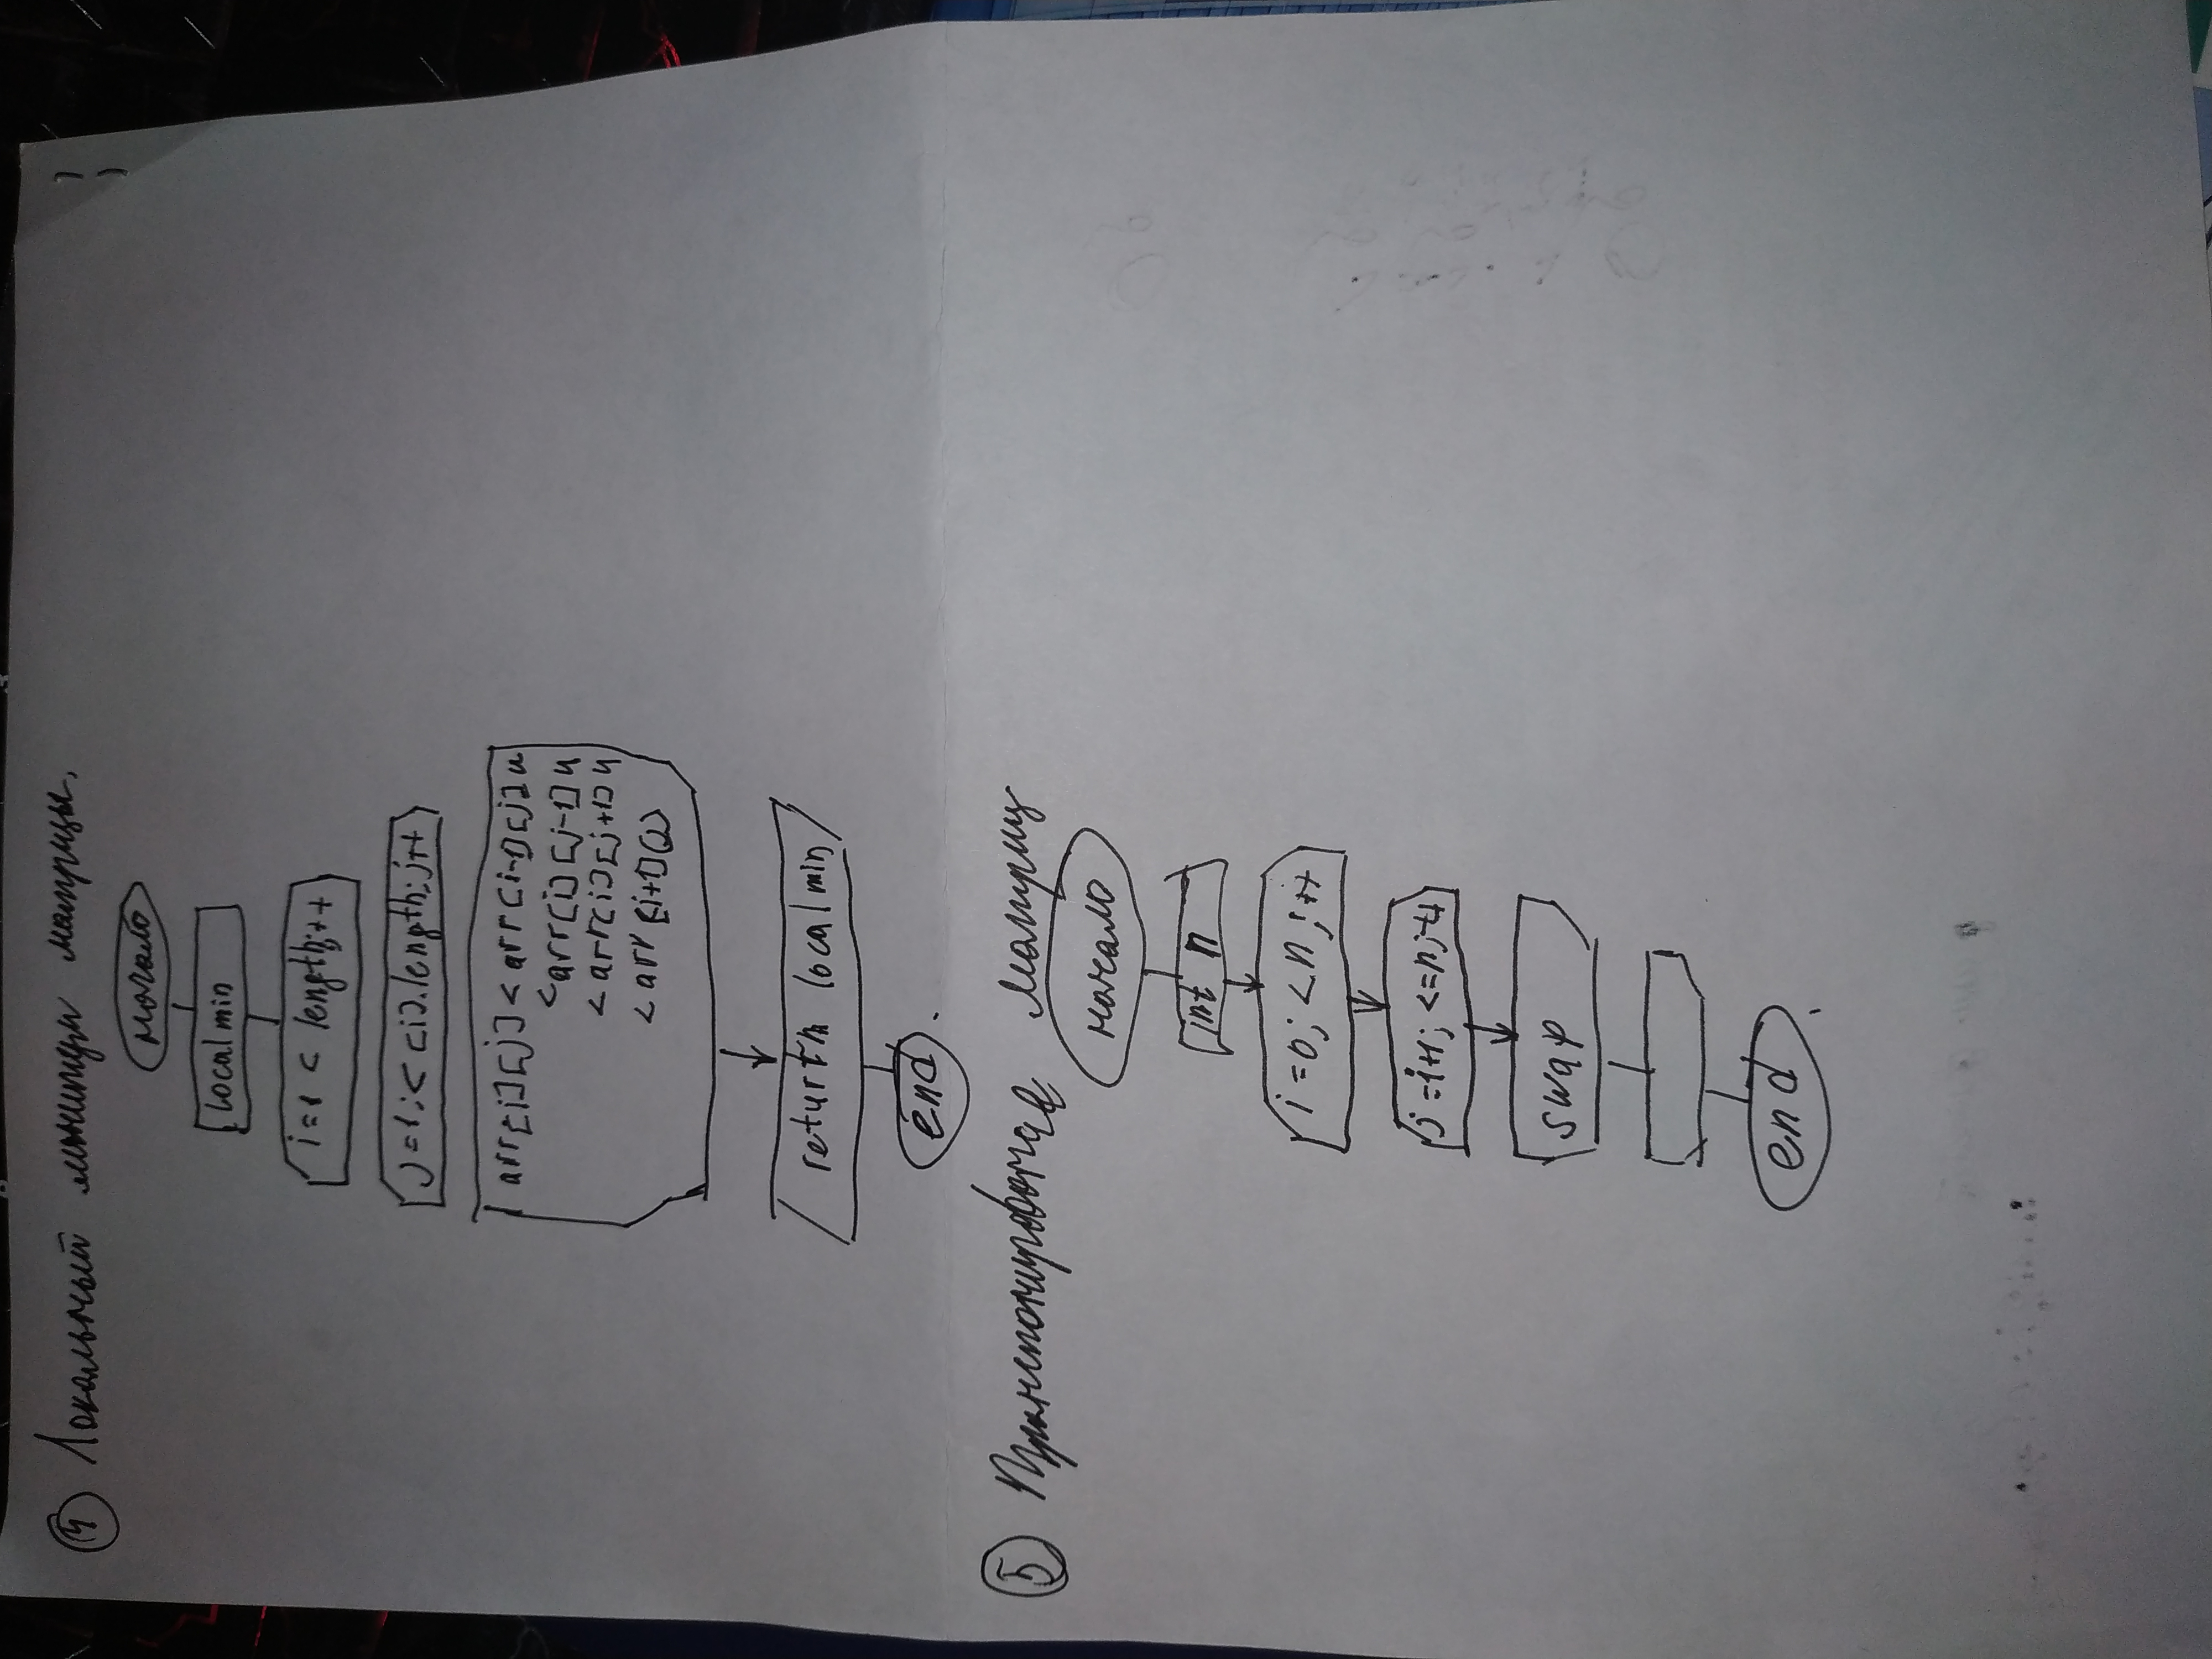 4 Локальный минимум матрицы.
начало
local min
i=1 < length;++
j=1;< [i].length;j++
arr[i][j] < arr[i-1][j] и
<arr[i][j-1] и
<arr[i][j+1] и
<arr[i+1][j]
return local min
end.
5 Транспонирование матриц
начало
int n
i=0; <n;++
j=i+1; <=n;++
swap
end